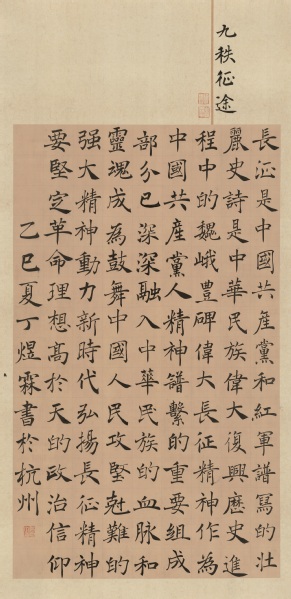 九秩征途
長征是中國共產黨和紅軍譜寫的壯
麗史詩是中華民族偉大復興歷史進
程中的巍峨豐碑偉大長征精神作為
中國共產黨人精神譜繫的重要組成
部分已深深融入中華民族的血脈和
靈魂成為鼓舞中國人民攻堅尅難的
强大精神動力新時代弘揚長征精神
要堅定革命理想高於天的政治信仰
乙巳夏丁煜霖書於杭州